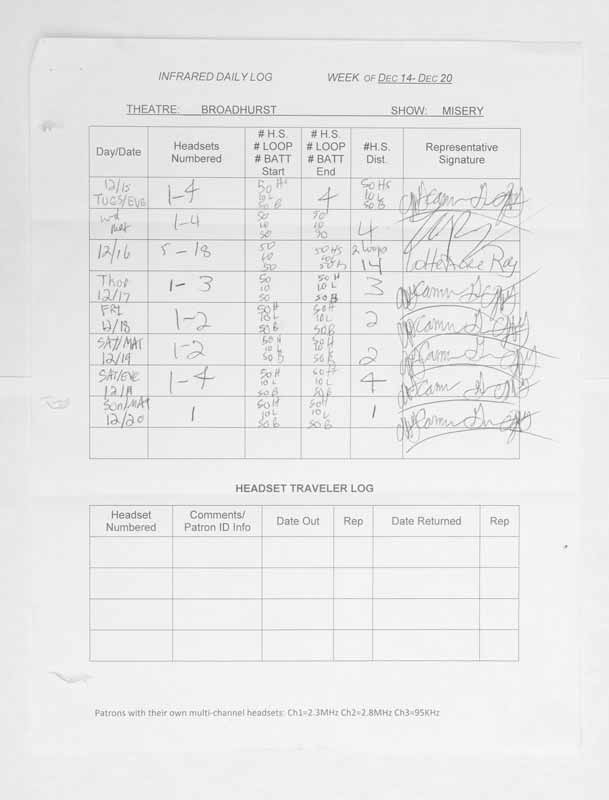 INFRARED DAILY LOG WEEK OF DEC 14- DEC 20
THEATRE: BROADHURST SHOW: MISERY
Day/Date
Headsets
Numbered
# H.S.
# LOOP
# BATT
Start
# H.S.
# LOOP
# BATT
End
#H.S.
Dist.
Representative
Signature
12/15
TUES/EVE
1-4
50 HS
10 L
50 B
4
50 HS
10 L
50 B
Wd
Mat
1-4
50
10
50
50
10
50
4
12/16
5-18
50
10
50
50 HS
10 L
50 b
2 loops
14
Thur
12/17
1-3
50
10
50
50 H
10 L
50 B
3
FRI
12/18
1-2
50 H
10 L
50 B
50 H
10 L
50 B
2
SAT/MAT
12/19
1-2
50 H
10 L
50 B
50 H
10 L
50 B
2
SAT/EVE
12/19
1-4
50 H
10 L
50 B
50 H
10 L
50 B
4
Sun/MAT
12/20
1
50 H
10 L
50 B
50 H
10 L
50 B
1
HEADSET TRAVELER LOG
Headset
Numbered
Comments/
Patron ID Info
Date Out
Rep
Date Returned
Rep
Patrons with their own multi-channel headsets: Ch1=2.3MHz Ch2=2.8MHz Ch3=95KHz